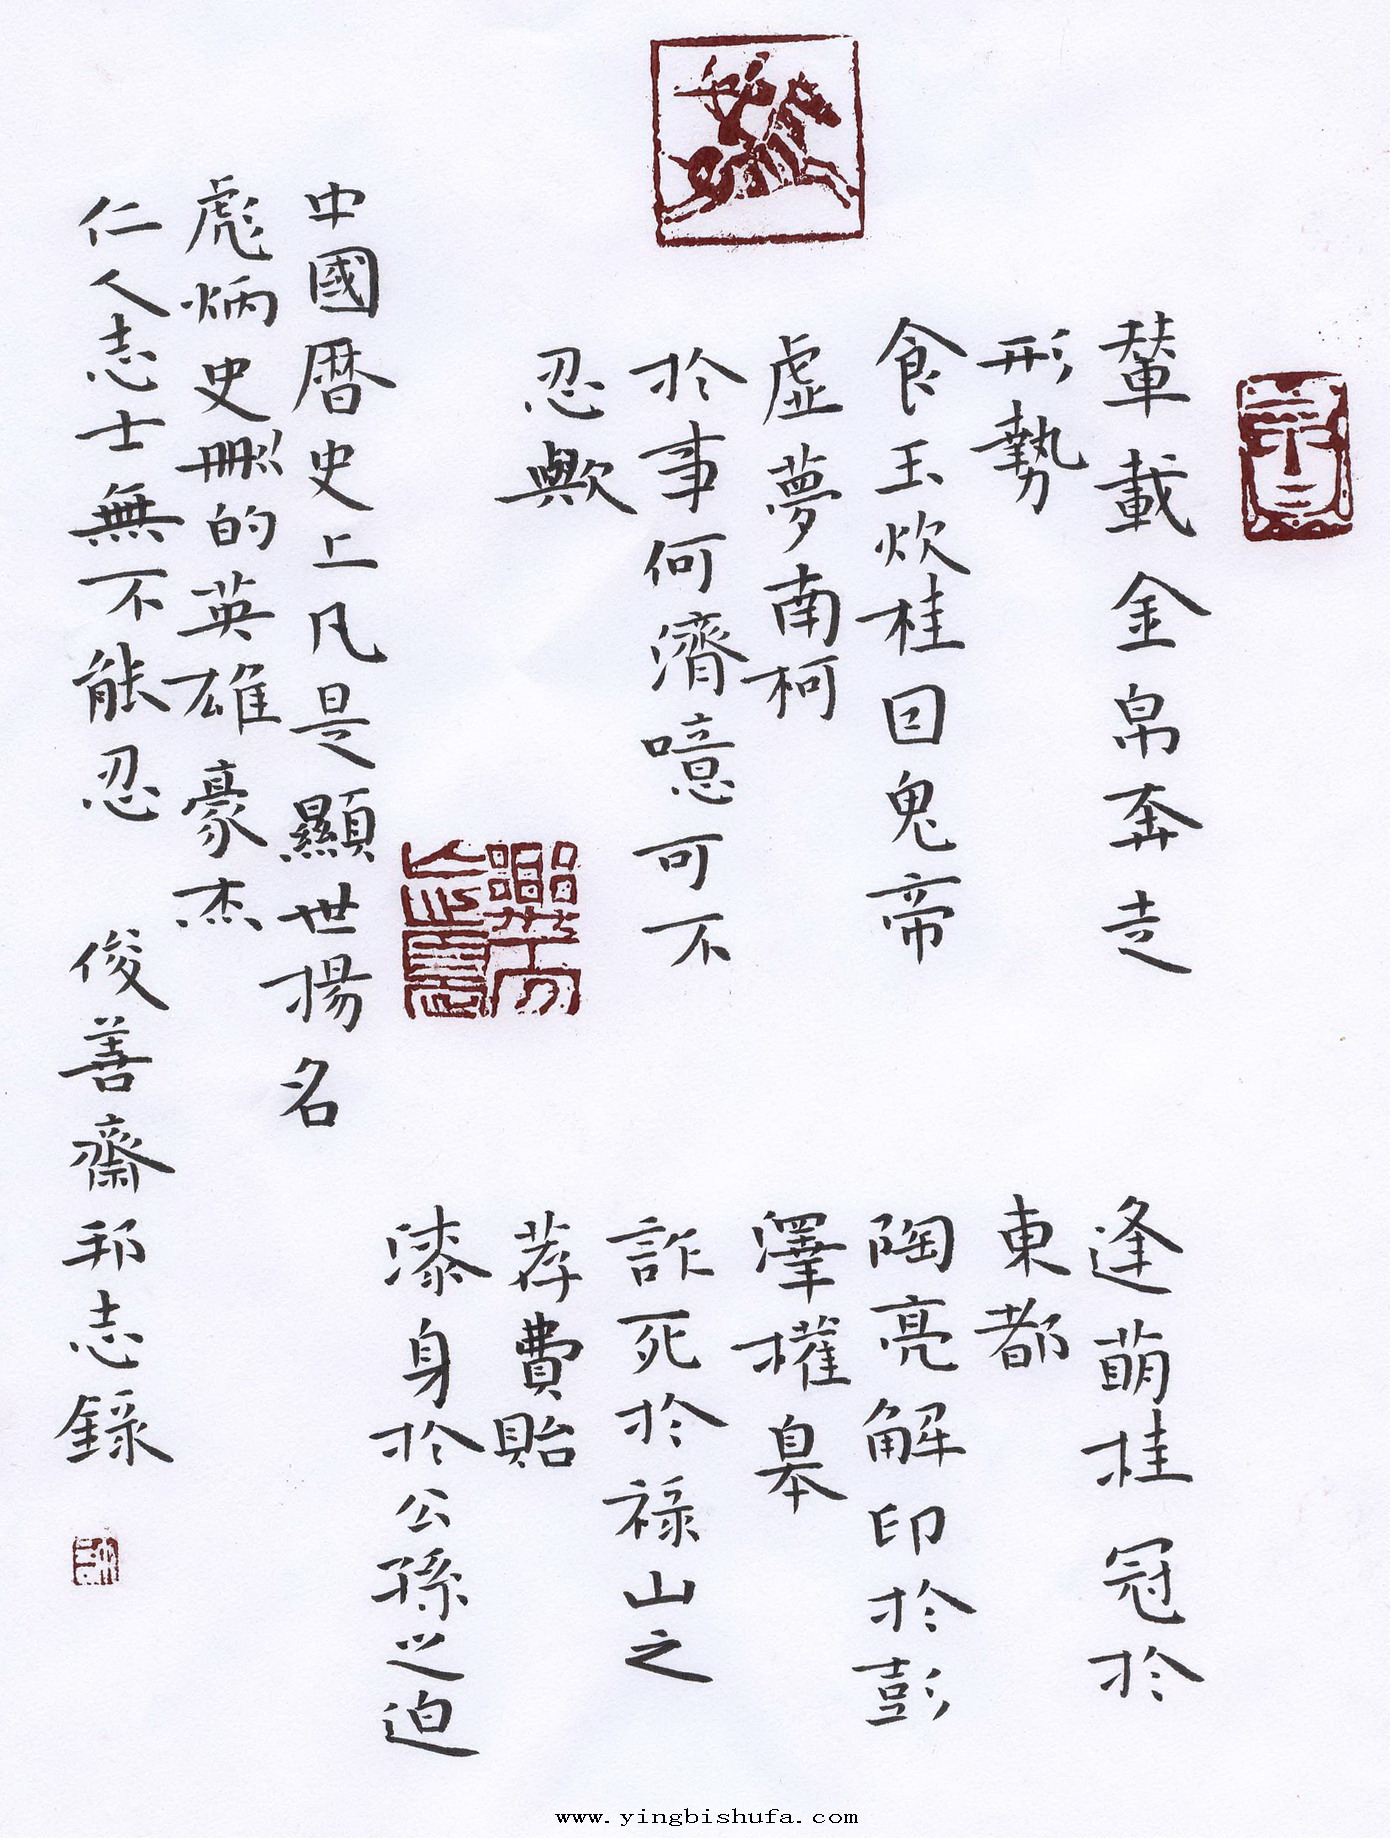 輦載金帛奔走
形勢
食玉炊桂囙鬼帝
虛夢南柯
於事何濟噫可不
忍歟
逢萌挂冠於
東都
陶亮解印於彭
澤權皋
詐死於祿山之
荐費貽
漆身於公孫之迫
中國暦史上凡是顯世揚名
彪炳史删的英雄豪杰
仁人志士無不能忍 俊善齋邦志錄
www.yingbishufa.com